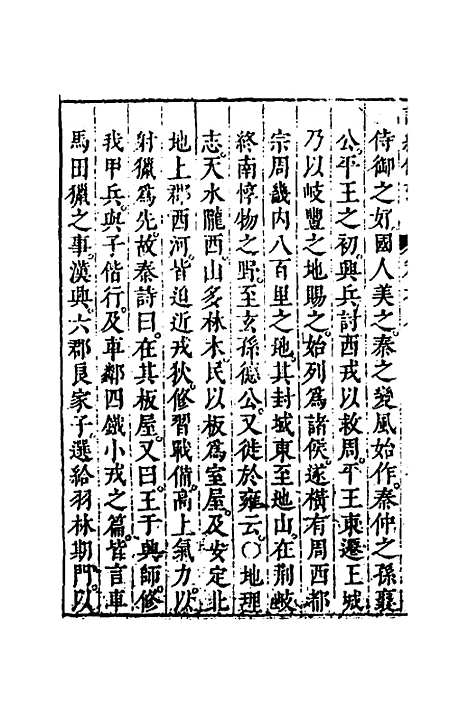 侍御之好國人美之秦之變風始作秦仲之孫襄
公平王之初興兵討西戎以救周平王東遷王城
乃以岐豐之地賜之始列爲諸侯遂橫有周西都
宗周畿内八百里之地其封域東至地山在荆岐
終南惇物之野至玄孫德公又徙於雍云○地理
志天水隴西山多林木民以板爲室屋及安定北
地上郡西河皆迫近戎狄修習戰備高上氣力以
射獵爲先故秦詩曰在其板屋又曰王于興師修
我甲兵與子偕行及車鄰四鐵小戎之篇皆言車
馬田獵之事漢興六郡良家子選給羽林期門以